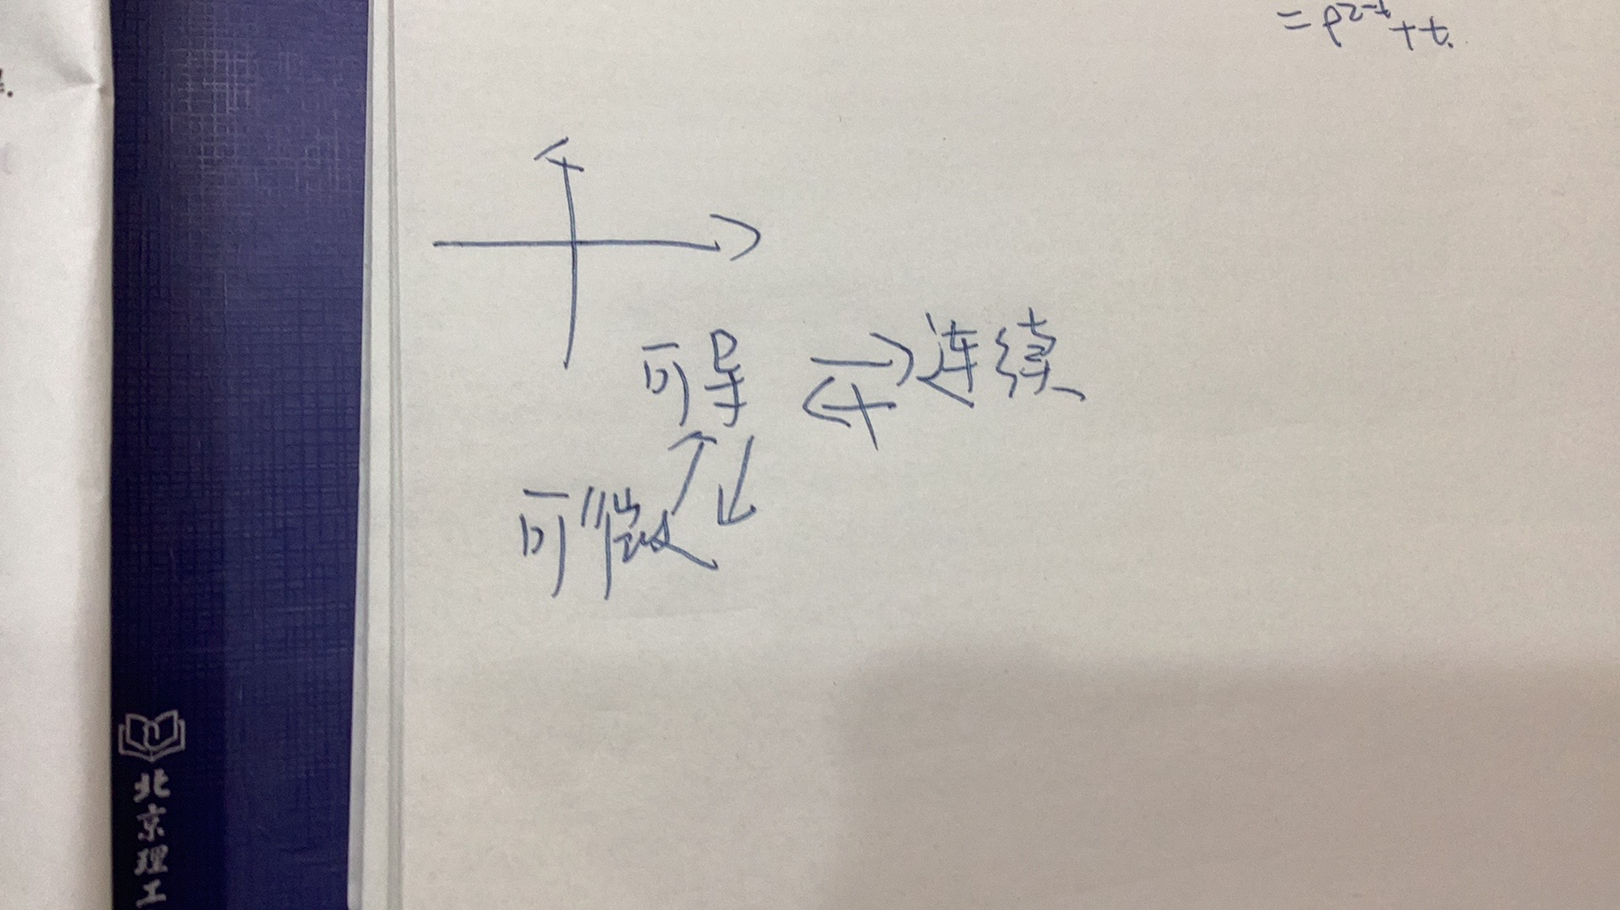 = e^{2-t} + t.
可导 ⇄ 连续
可微
北京理工